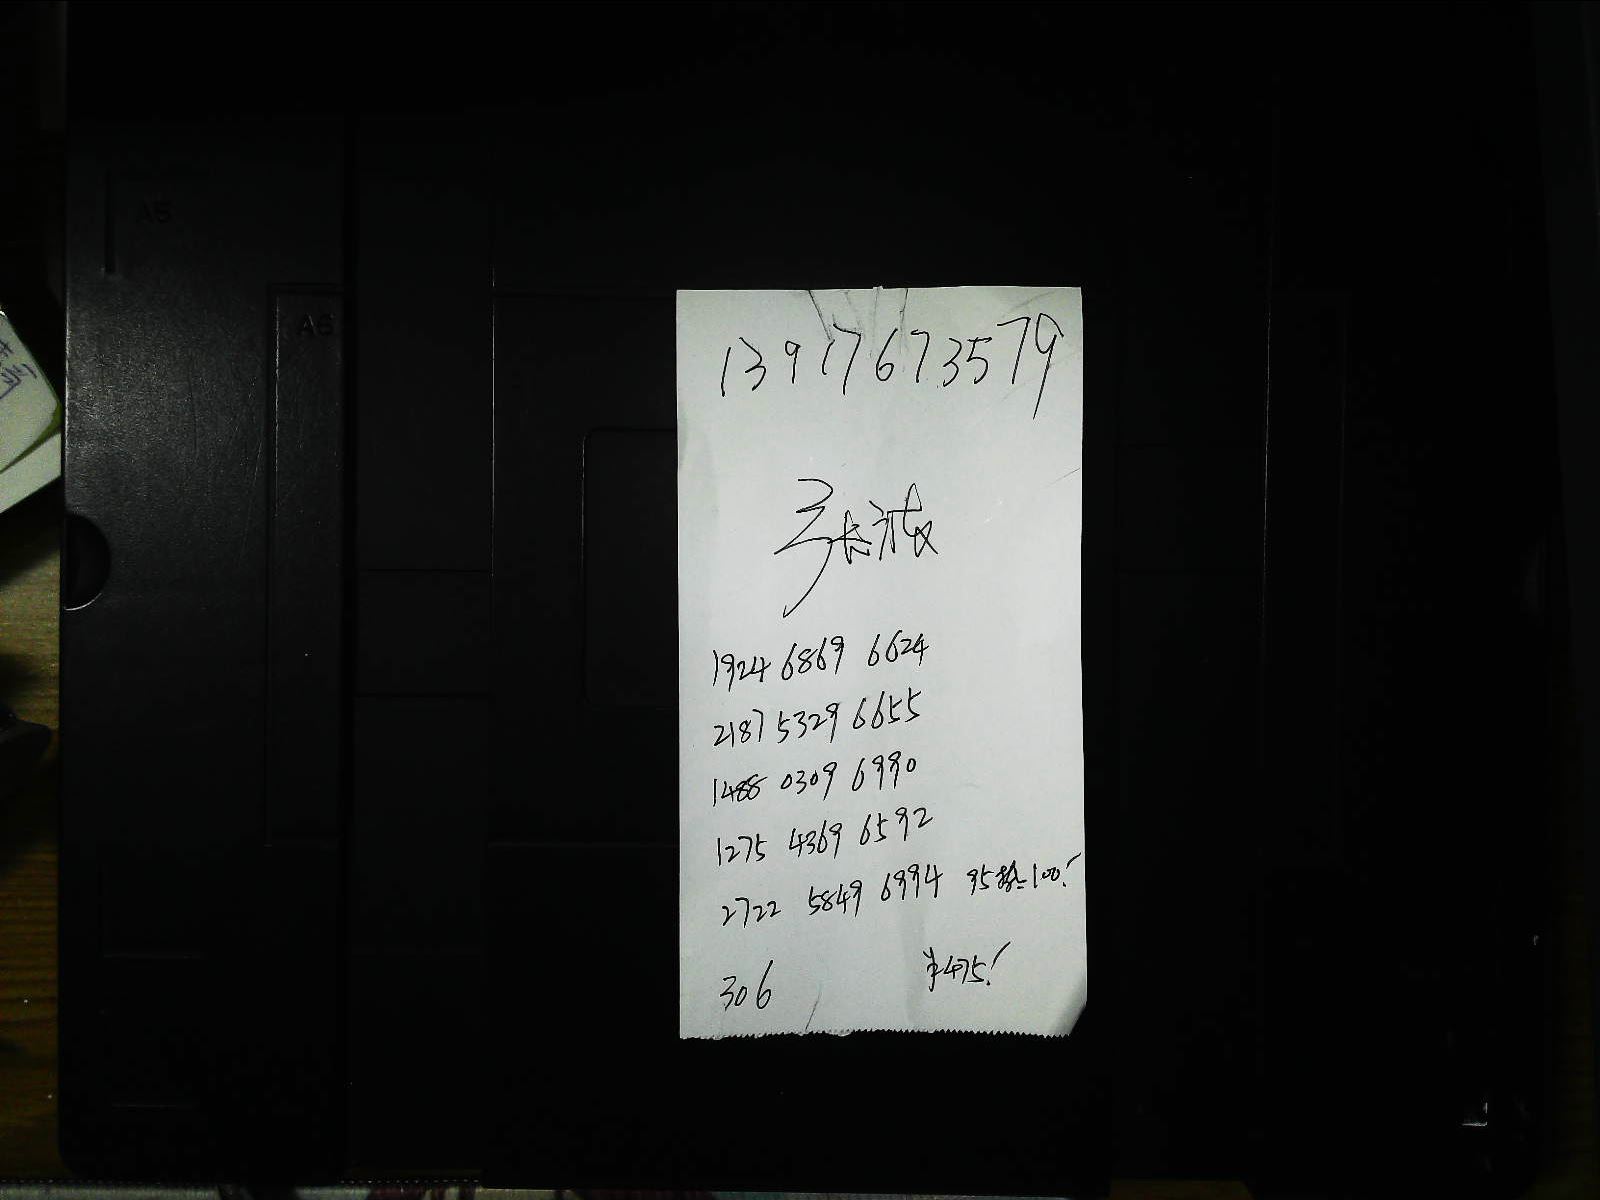 A5
A6
13917673579
1924 6869 6624
2187 5329 6655
1488 0309 6990
1275 4369 6592
2722 5849 6994 95 100!
306 ¥475!